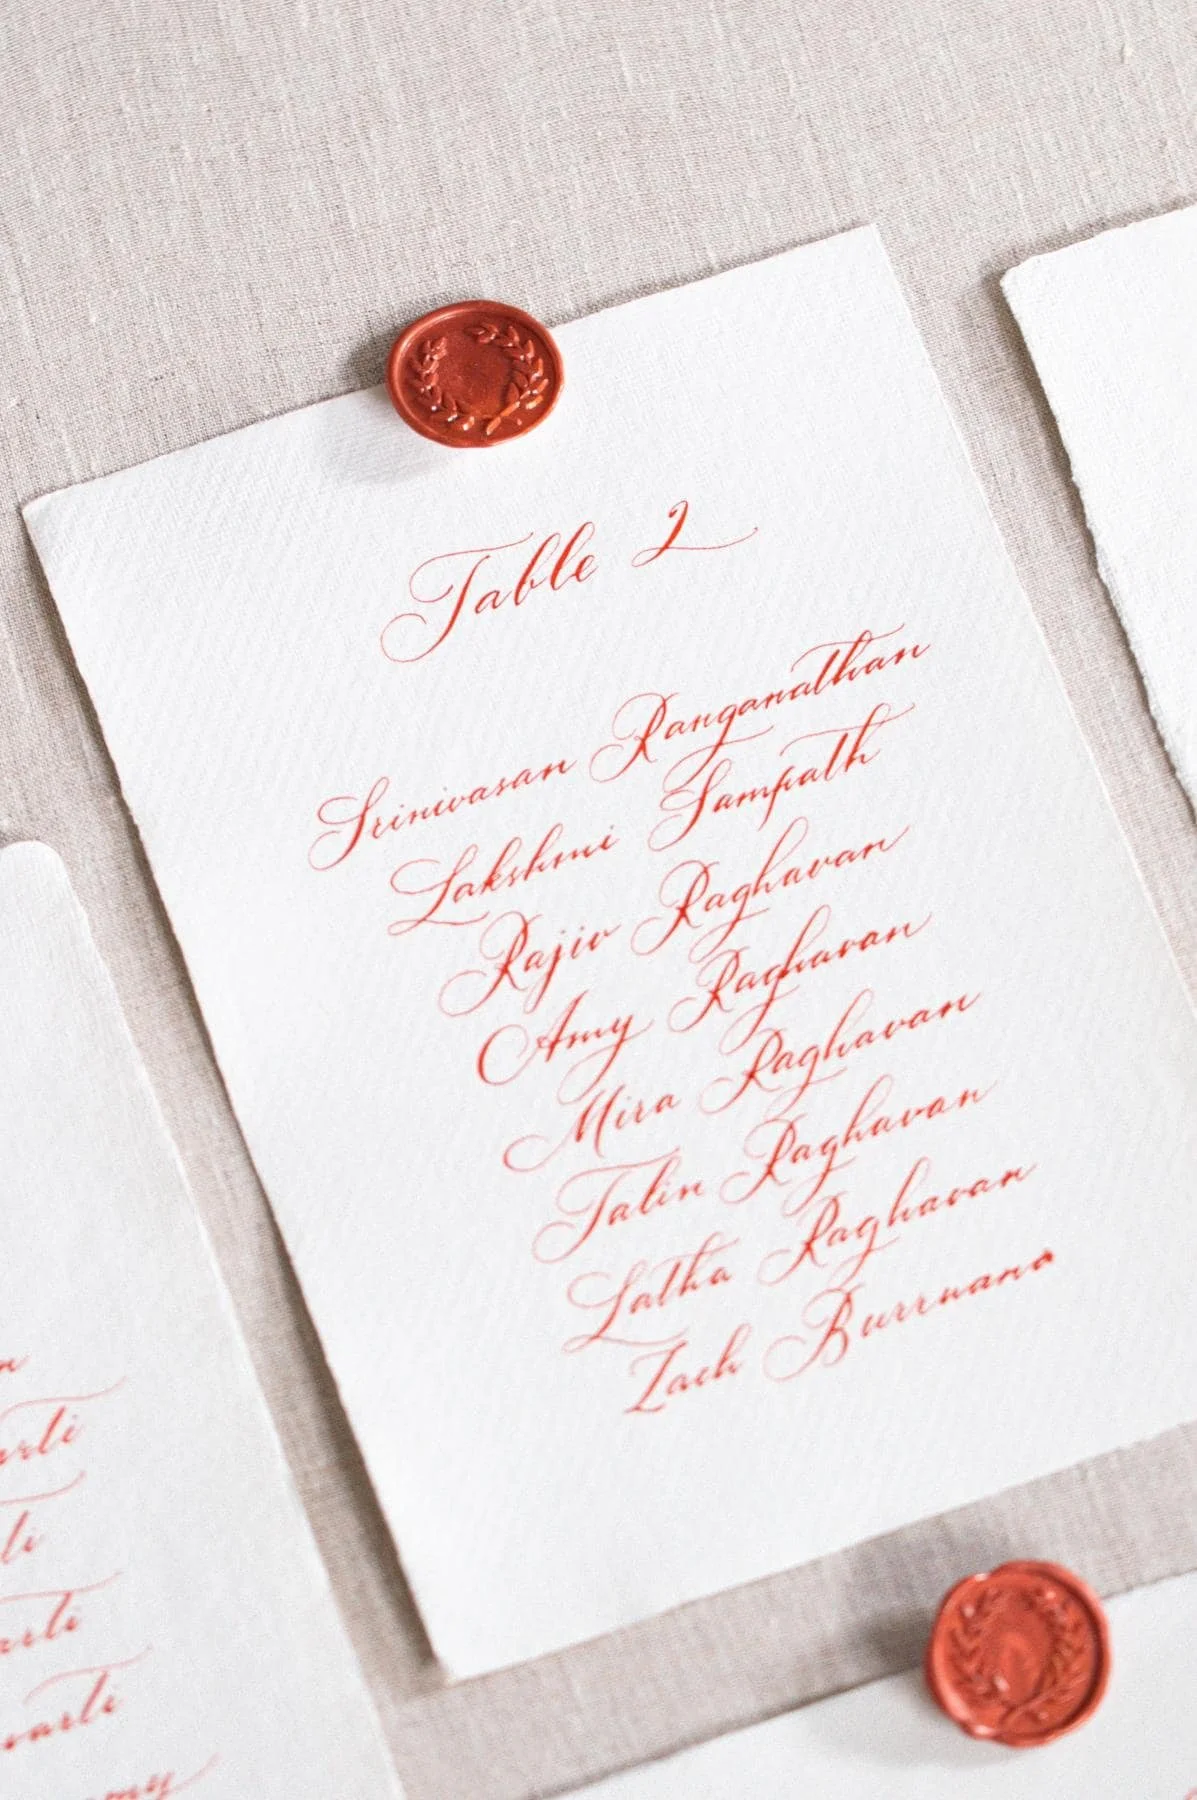 Table 2
Srinivasan Ranganathan
Lakshmi Sampath
Rajiv Raghavan
Amy Raghavan
Mira Raghavan
Jatin Raghavan
Latha Raghavan
Zach Burruano